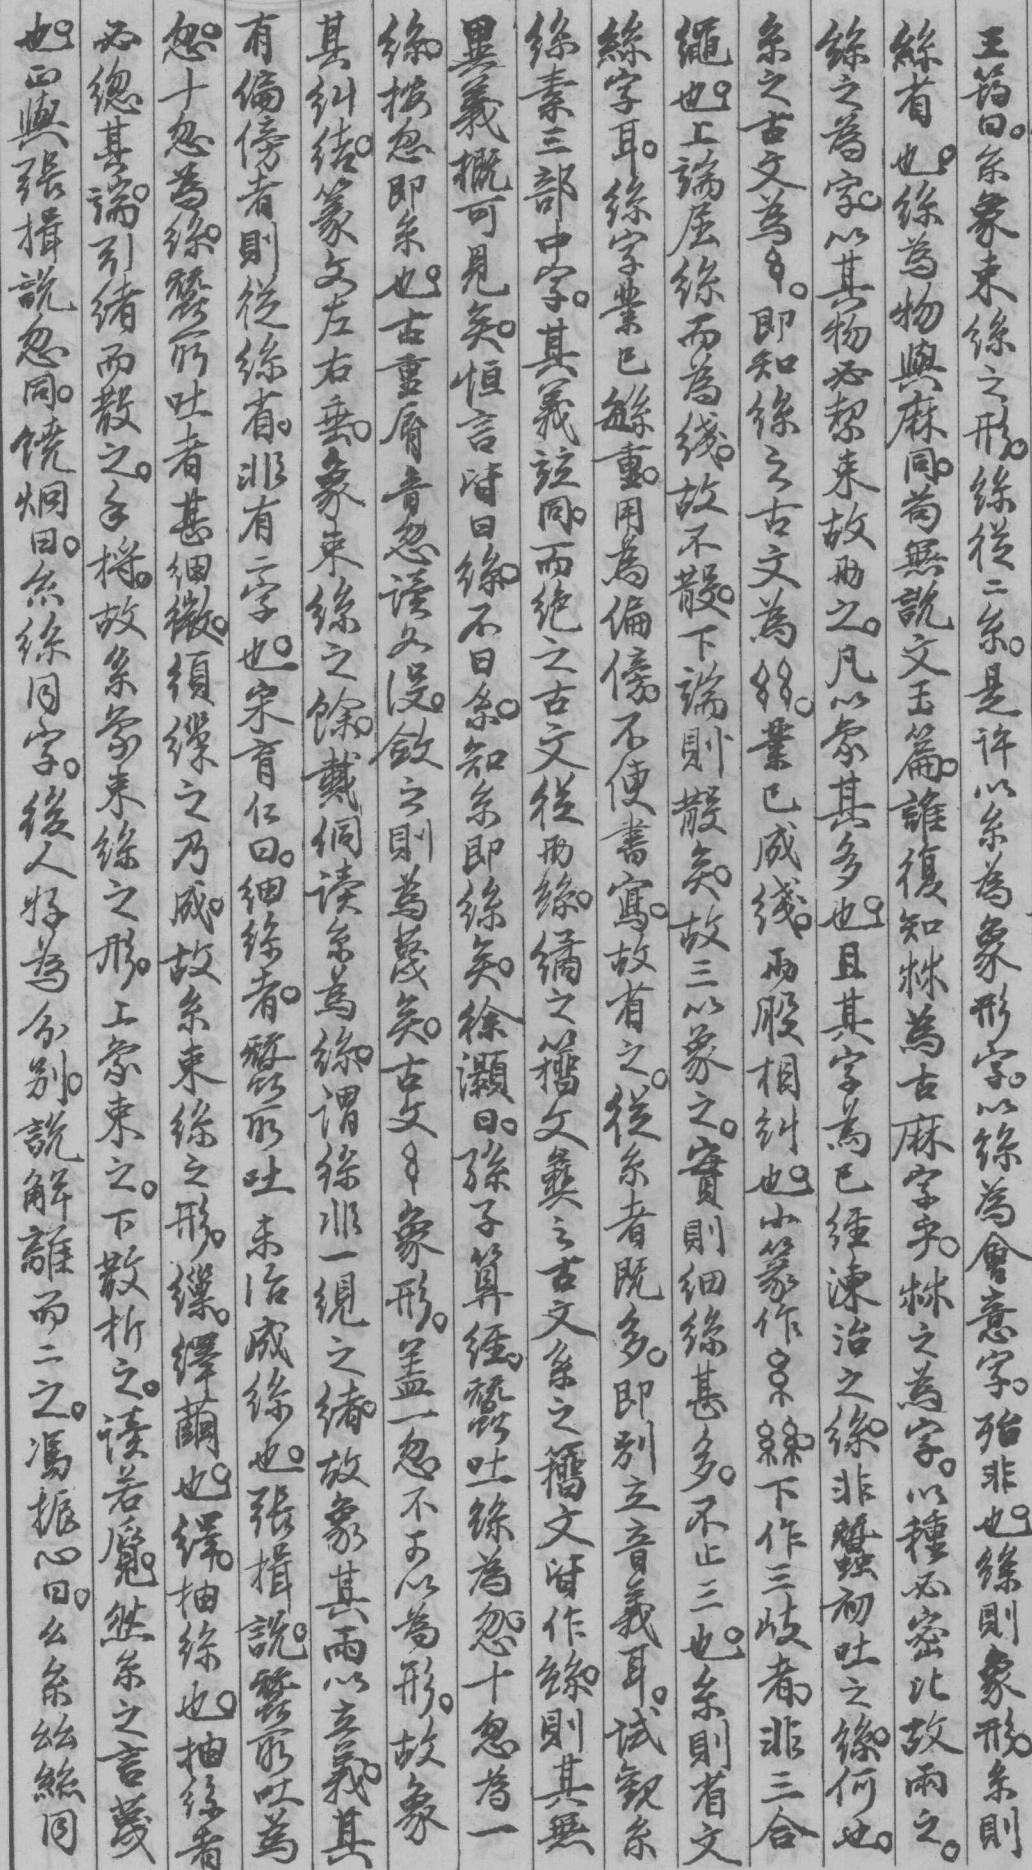 王筠曰。糸象束絲之形。絲從二糸。是許以糸為象形字。以絲為會意字。殆非也。絲則象形。糸則
絲省也。絲為物與麻同。苟無說文玉篇。誰復知𣏟為古麻字乎。𣏟之為字。以種必密比故兩之。
絲之為字。以其物必絜束故兩之。凡以象其多也。且其字為已經湅治之絲。非蠶初吐之絲。何也。
糸之古文為𢆯。即知絲之古文為𢇁。業已成綫。兩股相糾也。小篆作糸絲下作三歧者。非三合
繩也。上端屈絲而為綫。故不散。下端則散矣。故三以象之。實則細絲甚多。不止三也。糸則省文
絲字耳。絲字業已緐重。用為偏傍。不便書寫。故省之。從糸者既多。即別立音義耳。試觀糸
絲素三部中字。其義竝同。而絶之古文從兩絲。繘之籀文彝之古文系之籀文皆作絲。則其無
異義概可見矣。恒言皆曰絲。不曰糸。知糸即絲矣。徐灝曰。孫子算經。蠶吐絲為忽。十忽為一
絲。按忽即糸也。古重脣音忽讀如沒。斂之則為蔑矣。古文𢆯象形。蓋一忽不可以為形。故象
其糾結。篆文左右垂。象束絲之餘。戴侗讀糸為絲。謂絲非一緄之緒。故象其兩以立義。其
有偏傍者則從絲省。非有二字也。宋育仁曰。細絲者。蠶所吐未治成絲也。張揖說。蠶所吐為
忽。十忽為絲。蠶所吐者甚細微。須繅之乃成。故糸束絲之形。繅。繹繭也。繹。抽絲也。抽絲者
必總其端。引緒而散之。手捋。故糸象束絲之形。上象束之。下散析之。讀若覛。然糸之言蔑
也。正與張揖說忽同。饒炯曰。糸絲同字。後人好為分別。說解離而二之。馮振心曰。幺糸𢆶絲同